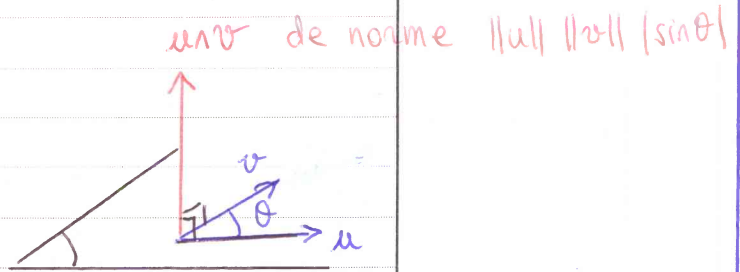 u∧v de norme ||u|| ||v|| |sinθ|
v
θ
u